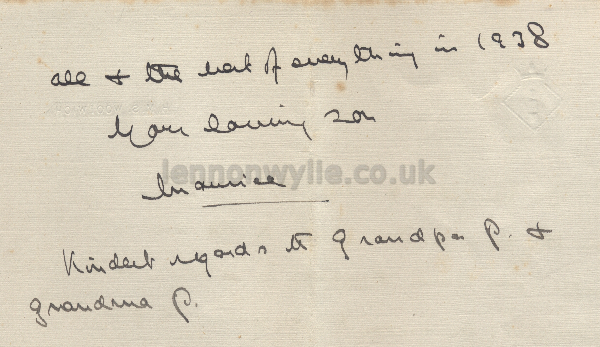 all & the best of everything in 1938
Your loving son
lennonwylie.co.uk
Maurice
Kindest regards to Grandpa P. &
grandma P.